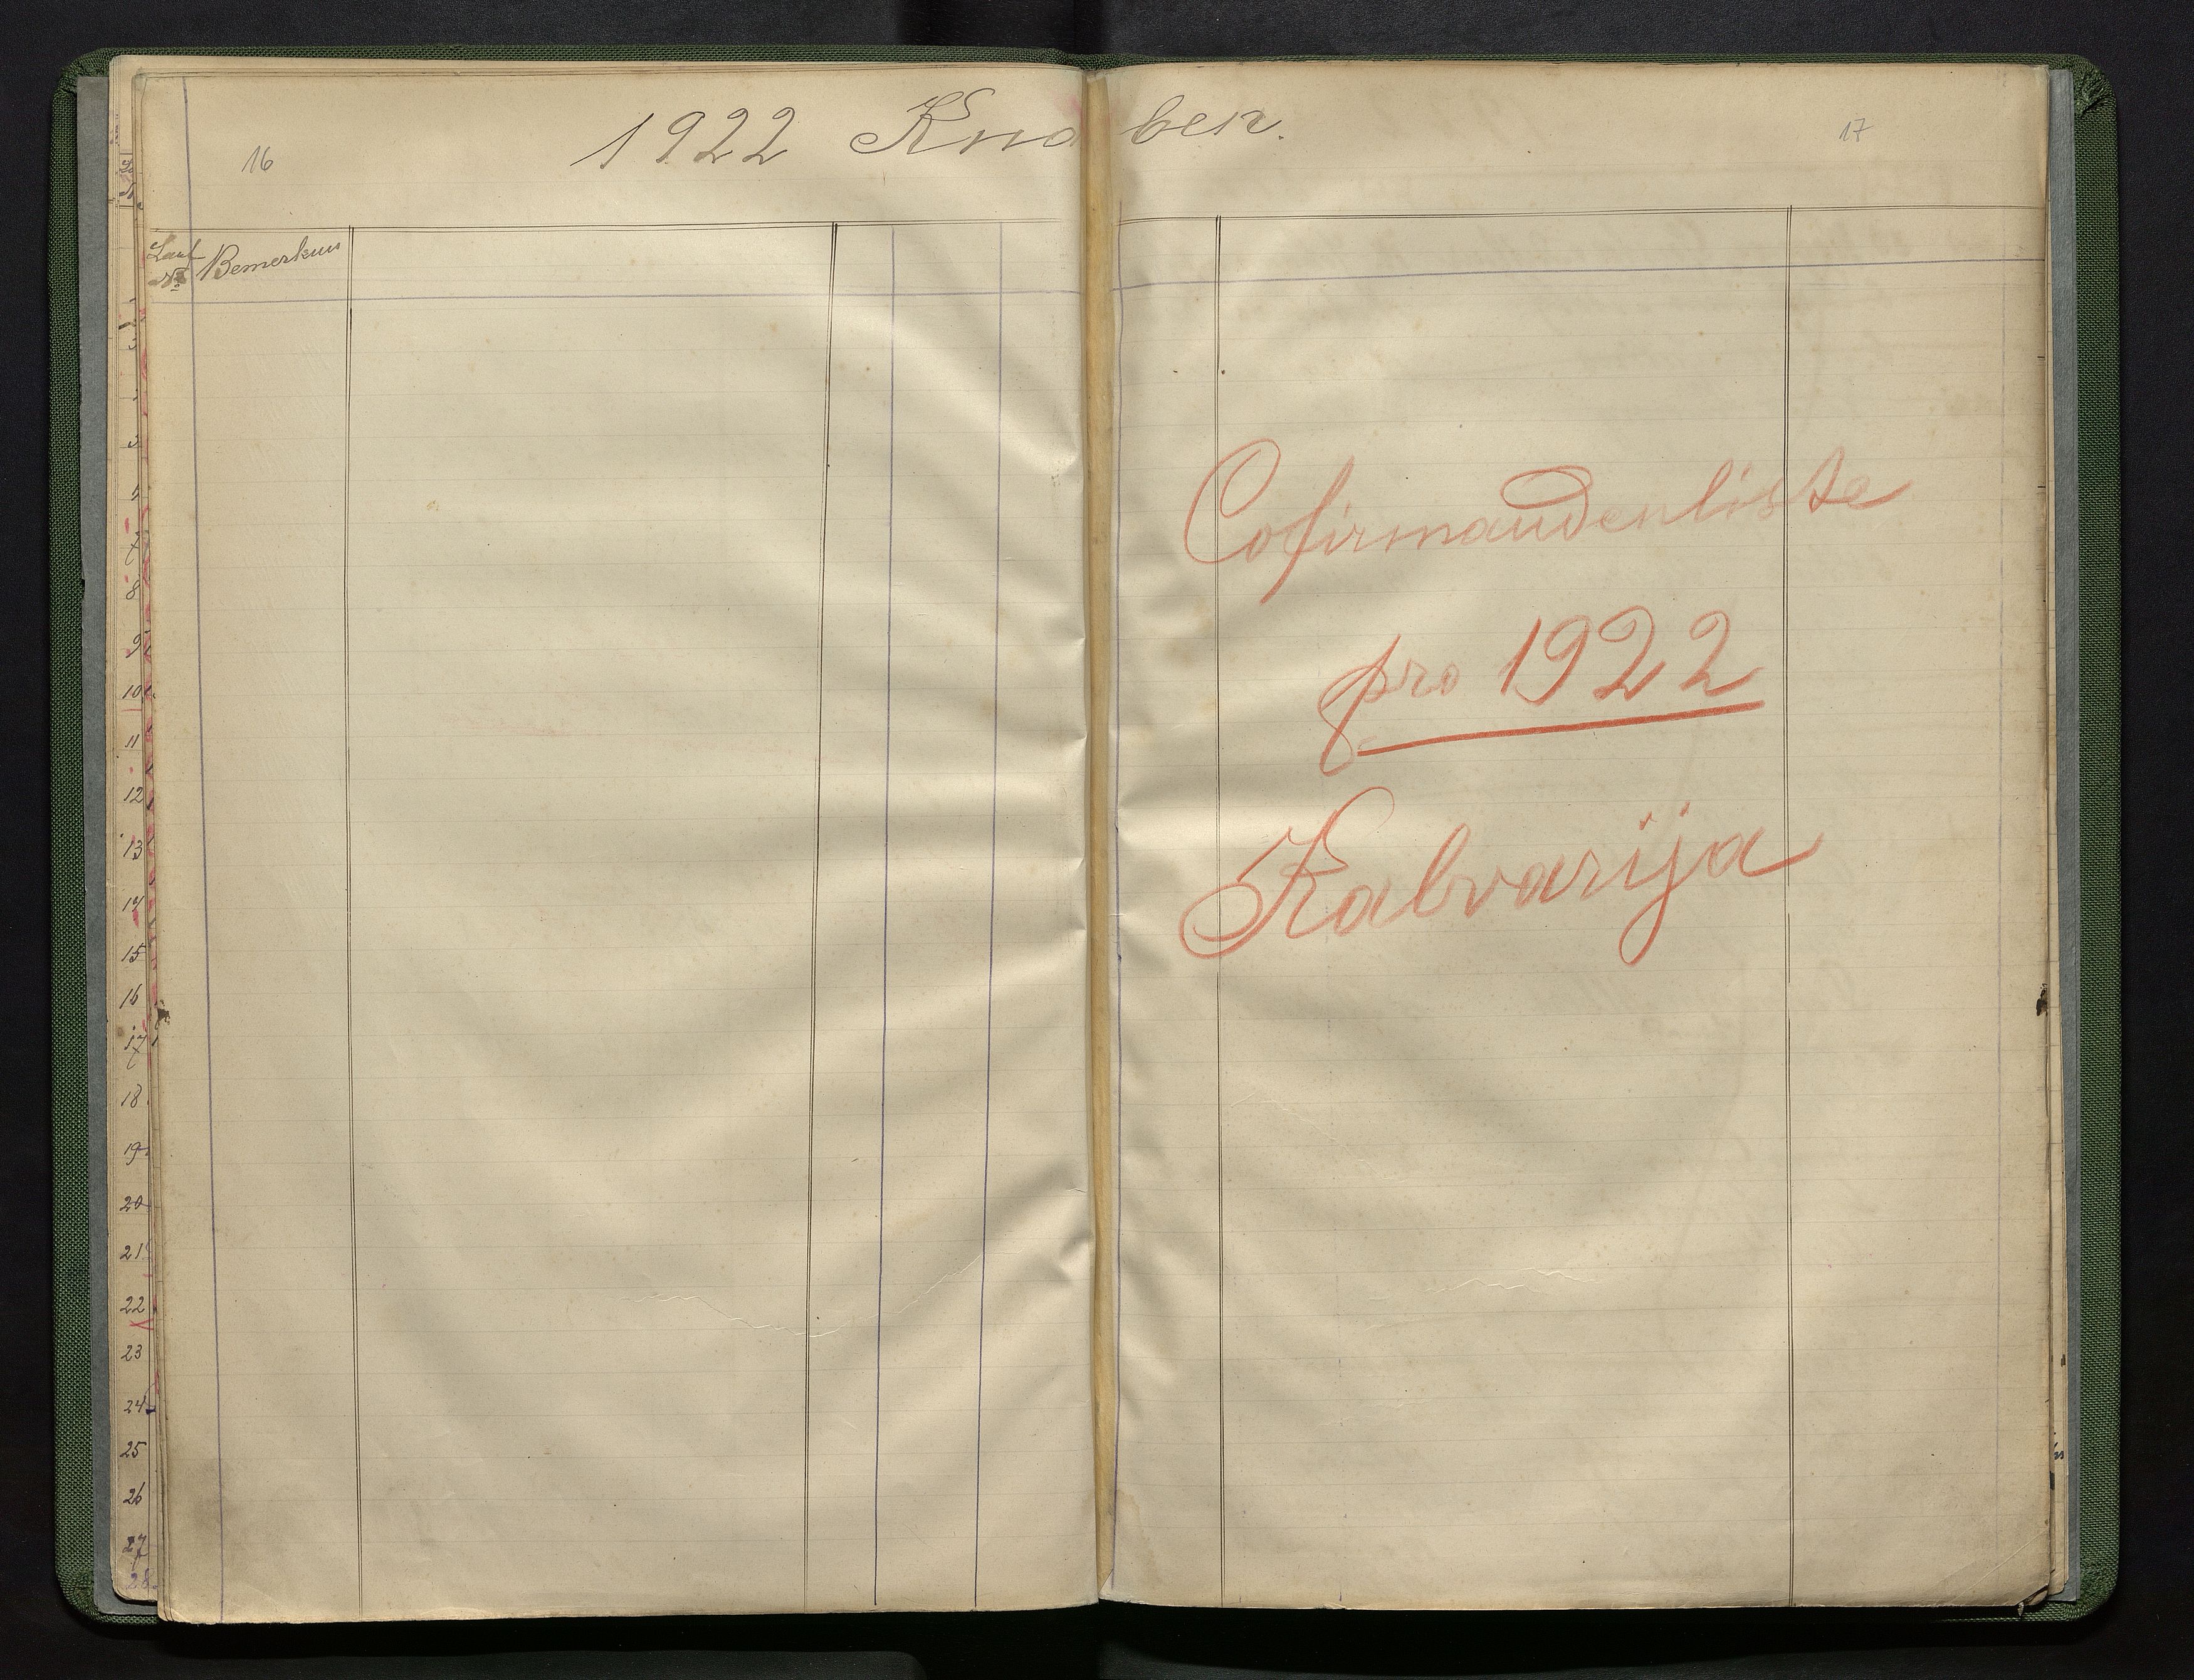 16
1922 Knaben.
17
Lauf Bemerkun
№
Cofirmandenliste
pro 1922
Kalvarija
8
9
10
11
12
13
14
15
16
17
18
19
20
21
22
23
24
25
26
27
28